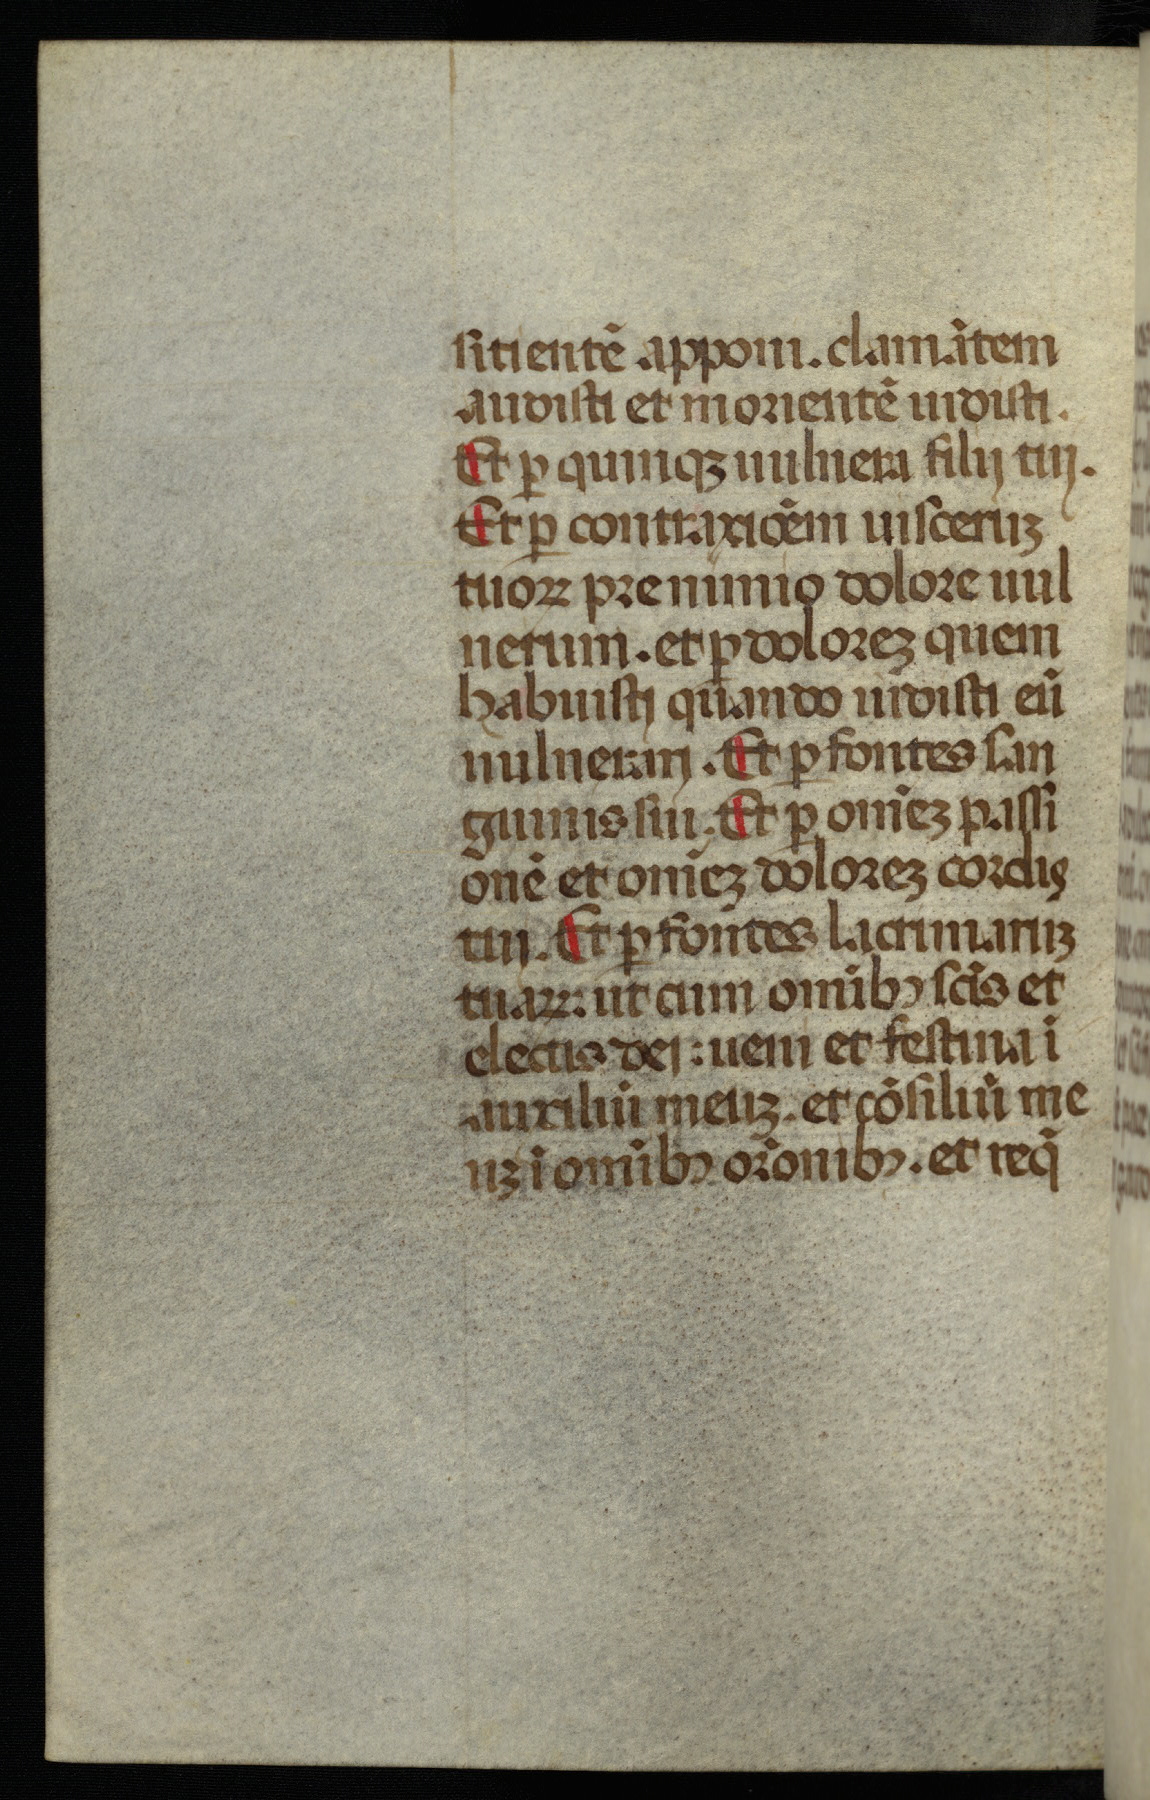 sitientē apponi. clamātem
audisti et morientē uidisti.
Et ꝑ quinqꝫ uulnera filij tuj.
Et ꝑ contraxiōem uisceruꝫ
tuoꝝ pre nimio dolore uul
nerum. et ꝑ doloreꝫ quem
habuistj quando uidisti eū
uulnerarj. Et ꝑ fontes san
guinis sui. Et ꝑ om̄eꝫ passi
ōnē et om̄eꝫ doloreꝫ cordis
tuj. Et ꝑ fontes lacrimaruꝫ
tuaꝝ: ut cum omībꝰ sc̄is et
electis dej: ueni et festina ī
auxiliū meuꝫ. et cōsiliū me
uꝫ ī omībꝰ orōnibꝰ. et req̄